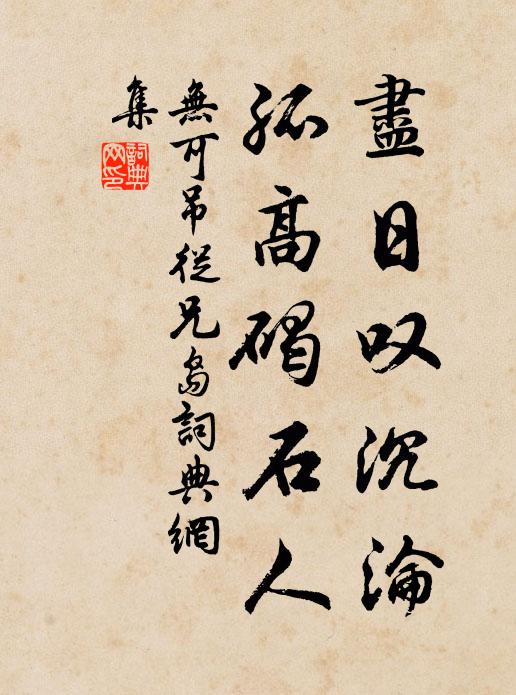 盡日叹沉淪
孤高碣石人
無可吊從兄島詞典網
集
詞典网印